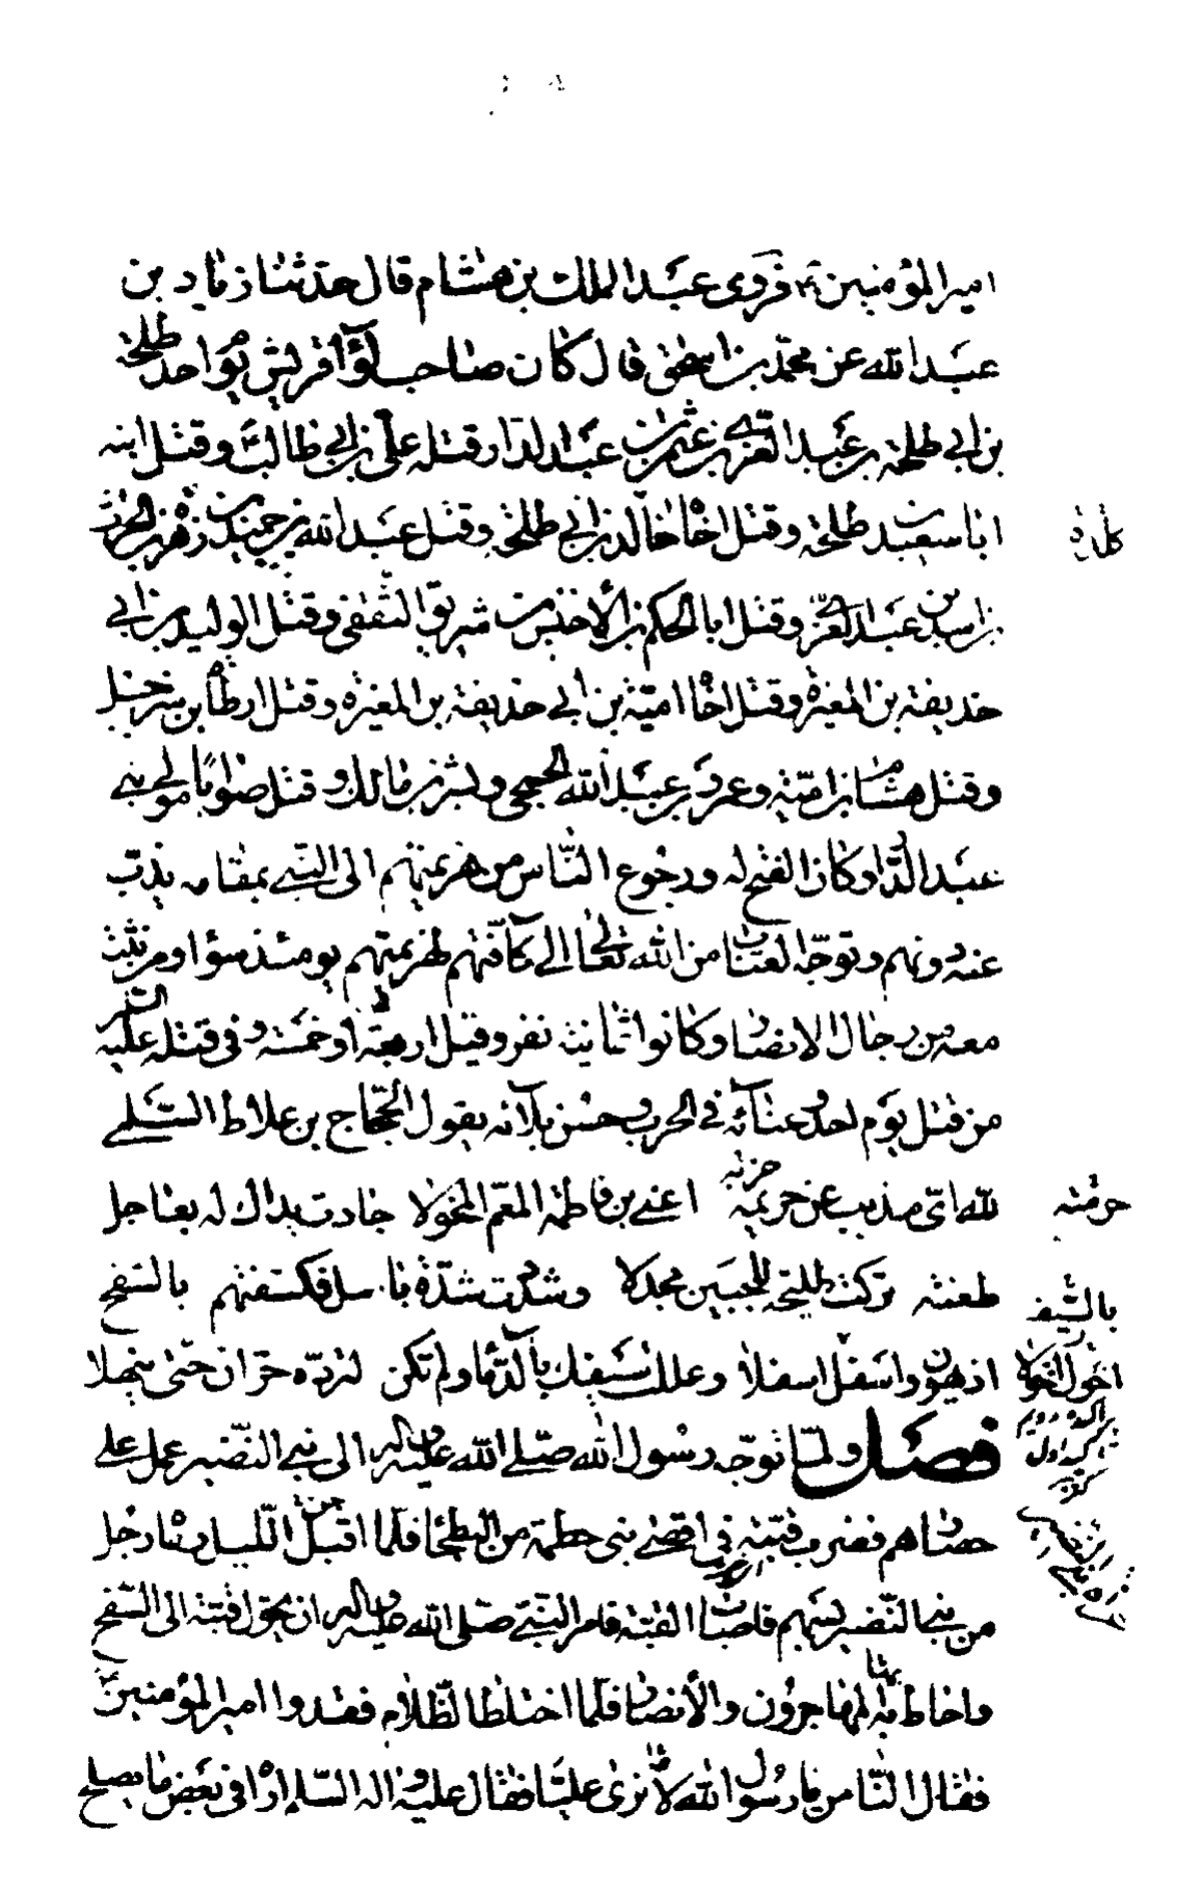 امير المؤمنين فروى عبد الملك بن هشام قال حدثنا زياد بن
عبد الله عن محمد بن اسحق قال كان صاحب لواء قريش يوم احد طلحة
بن ابي طلحة بن عبد العزى بن عثمن بن عبد الدار قتله علي بن ابي طالب وقتل ابنه
ابا سعيد بن طلحة وقتل اخاه خالد بن ابي طلحة وقتل عبد الله بن حميد بن زهرة بن الحرث
بن اسد بن عبد العزى وقتل ابا الحكم بن الاخنس بن شريق الثقفى وقتل الوليد بن ابي
حذيفة بن المغيرة وقتل اخاه امية بن ابي حذيفة بن المغيرة وقتل ارطاة بن شرحبيل
وقتل هشام بن امية وعمرو بن عبد الله الجمحي وبشر بن مالك وقتل صوابا مولى بني
عبد الدار وكان الفتح له ورجوع الناس من هزيمتهم الى النبي بمقامه يذب
عنه دونهم وتوجه العتاب من الله تعالى الى كافتهم لهزيمتهم يومئذ سواه ومن ثبت
معه من رجال الانصار وكانوا ثمانية نفر وقيل اربعة او خمسة وفى قتله عليه السلم
من قتل يوم احد وعنائه في الحرب وحسن بلائه يقول الحجاج بن علاط السلمي
لله اي مذبب عن حريمه حزبه اعني بن فاطمة المعم المخولا جادت يداك له بعاجل
حرمته
طعنة تركت طليحة للجبين مجدلا وشددت شدة باسل فكشفتهم بالسفح
بالسيف
اذ يهوون اسفل اسفلا وعللت سيفك بالدماء ولم تكن لترده حران حتى ينهلا
اخول اخولا
فصل ولما توجه رسول الله صلى الله عليه واله الى بني النضير عمل على
حصارهم فضرب قبته في اقصى بني حطمة من البطحاء فلما اقبل الليل رماه رجل
من بني النضير بسهم فاصاب القبة فامر النبي صلى الله عليه واله ان يحول قبته الى السفح
واحاط به المهاجرون والانصار فلما اختلط الظلام فقدوا امير المؤمنين
فقال الناس يا رسول الله لا نرى عليا فقال عليه واله السلم اراه في بعض ما يصلح